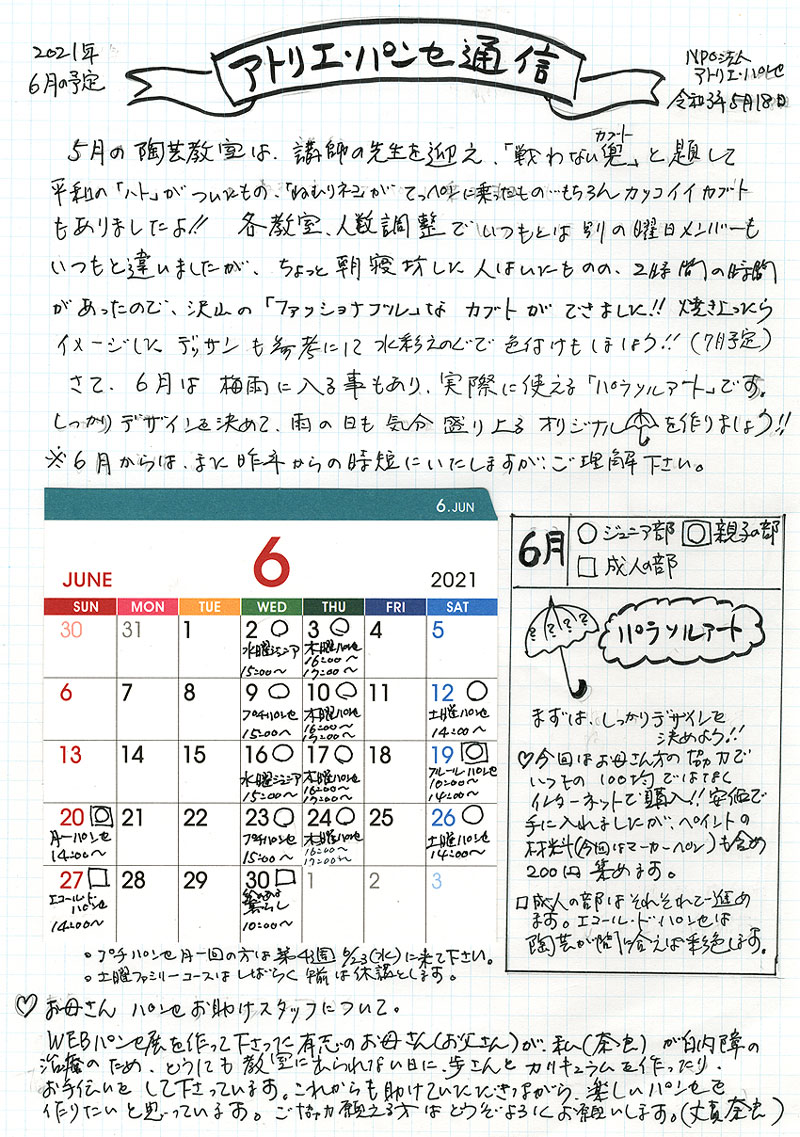 2021年
6月の予定
アトリエ・パンセ通信
NPO法人
アトリエ・パンセ
令和3年5月18日
5月の陶芸教室は、講師の先生を迎え、「戦わない兜」と題して
カブト
平和の「ハト」がついたもの、「ねむりネコ」がてっぺんに乗ったもの…もちろんカッコイイカブト
もありましたよ!! 各教室、人数調整でいつもとは別の曜日メンバーも
いつもと違いましたが、ちょっと朝寝坊した人はいたものの、2時間の時間
があったので、沢山の「ファッショナブル」なカブトができました!! 焼き上ったら
イメージしたデッサンも参考にして水彩えのぐで色付けもしましょう!! (7月予定)
さて、6月は梅雨に入る事もあり、実際に使える「パラソルアート」です。
しっかりデザインを決めて、雨の日も気分盛り上るオリジナル を作りましょう!!
※6月からは、また昨年からの時短にいたしますが、ご理解下さい。
6.JUN
JUNE 6 2021
SUN MON TUE WED THU FRI SAT
30 31 1 2 3 4 5
水曜ジュニア 15:00〜
木曜パンセ 16:00〜 17:00〜
6 7 8 9 10 11 12
プチパンセ 15:00〜
木曜パンセ 16:00〜 17:00〜
土曜パンセ 14:00〜
13 14 15 16 17 18 19
水曜ジュニア 15:00〜
木曜パンセ 16:00〜 17:00〜
フルールパンセ 10:00〜 14:00〜
20 21 22 23 24 25 26
月一パンセ 14:00〜
プチパンセ 15:00〜
木曜パンセ 16:00〜 17:00〜
土曜パンセ 14:00〜
27 28 29 30 1 2 3
エコールドパンセ 14:00〜
絵のある暮らし 10:00〜
6月
○ジュニア部 ◎親子の部
□成人の部
パラソルアート
まずは、しっかりデザインを
決めよう!!
♡今回はお母さん方の協力で
いつもの100均ではなく
インターネットで購入!! 安価で
手に入れましたが、ペイントの
材料(今回はマーカーペン)も含め
200円集めます。
□成人の部はそれぞれで進め
ます。エコール・ド・パンセは
陶芸が間に合えば彩色します。
○プチパンセ月一回の方は第4週 6/23(水)に来て下さい。
○土曜ファミリーコースはしばらく午前は休講とします。
♡お母さん パンセお助けスタッフについて。
WEBパンセ展を作って下さった有志のお母さん(お父さん)が、私(奈良)が白内障の
治療のため、どうしても教室におられない日に、歩さんとカリキュラムを作ったり、
お手伝いをして下さっています。これからも助けていただきながら、楽しいパンセを
作りたいと思っています。ご協力願える方はどうぞよろしくお願いします。